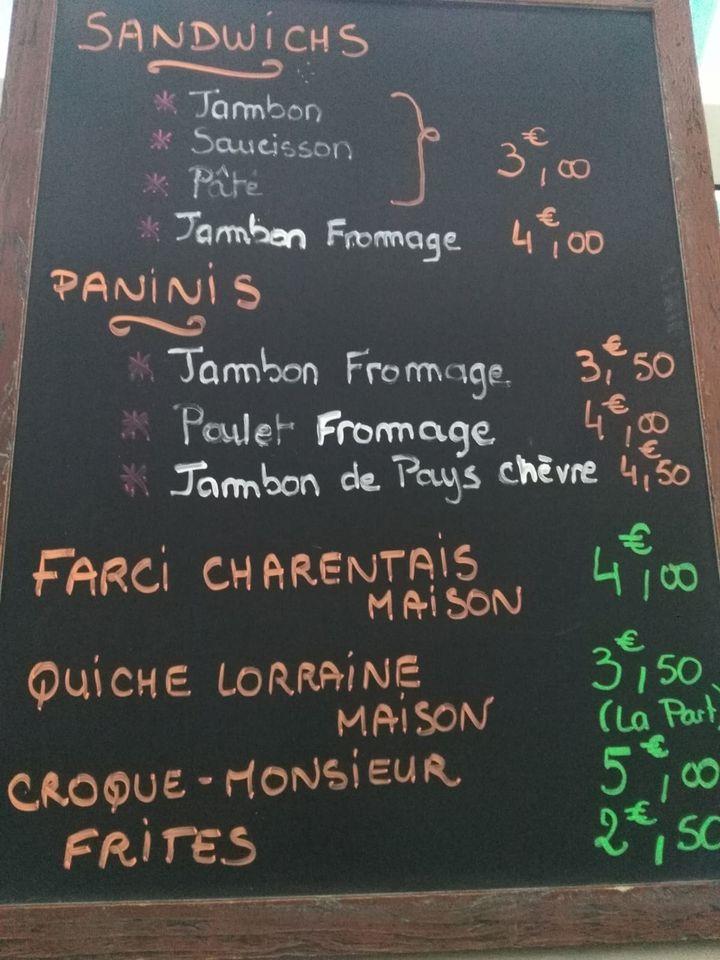 SANDWICHS
* Jambon
* Saucisson
* Pâté
3€,00
* Jambon Fromage 4€,00
PANINIS
* Jambon Fromage 3,€50
* Poulet Fromage 4€,00
* Jambon de Pays chèvre 4,€50
FARCI CHARENTAIS 4€,00
MAISON
QUICHE LORRAINE 3€,50
MAISON (La Part)
CROQUE-MONSIEUR 5€,00
FRITES 2€,50